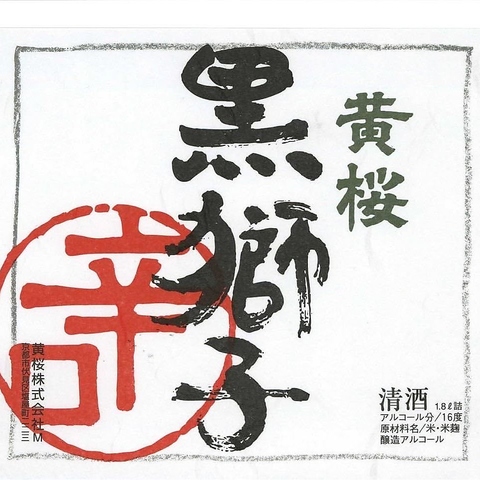 黄桜
黒獅子
清酒 1.8ℓ詰
アルコール分/16度
原材料名/米・米麹
醸造アルコール
黄桜株式会社M
京都市伏見区塩屋町二二三